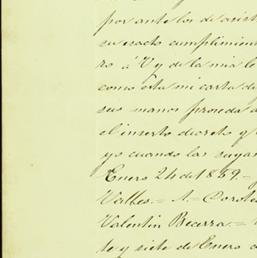 por ante los de asist
su exacto cumplimien
ro á V y de la mia le
como ésta mi carta de
sus manos proceda a
el inserto decreto q
yo cuando las suyas
Enero 24 de 1859.-
Valles.= A.= Doroteo
Valentin Becerra.=
te y siete de Enero d